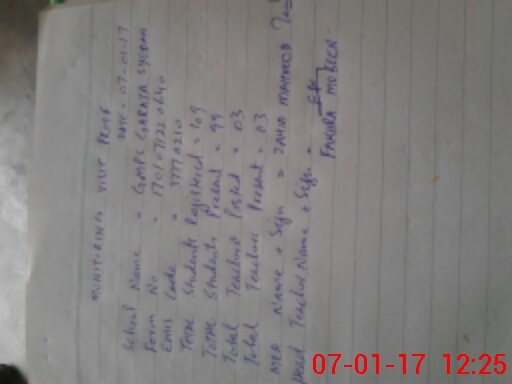 MONITORING VISIT PROF
DATE = 07-01-17
School Name = GMPC GARATA SYEDAN
Form No = 1701071220640
Emis Code = 37770210
Total Students Registered = 109
Total Students Present = 99
Total Teachers Posted = 03
Total Teachers Present = 03
MEA Name + Sign = ZAHID MAHMOOD
Head Teacher Name + Sign =
FAKHRA MOBEEN
07-01-17 12:25